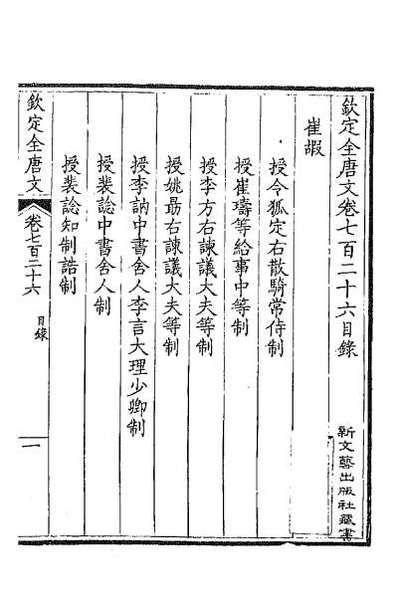 欽定全唐文卷七百二十六目錄
新文藝出版社藏書
崔嘏
授令狐定右散騎常侍制
授崔璹等給事中等制
授李方右諫議大夫等制
授姚勗右諫議大夫等制
授李訥中書舍人李言大理少卿制
授裴諗中書舍人制
授裴諗知制誥制
欽定全唐文
卷七百二十六
目錄
一